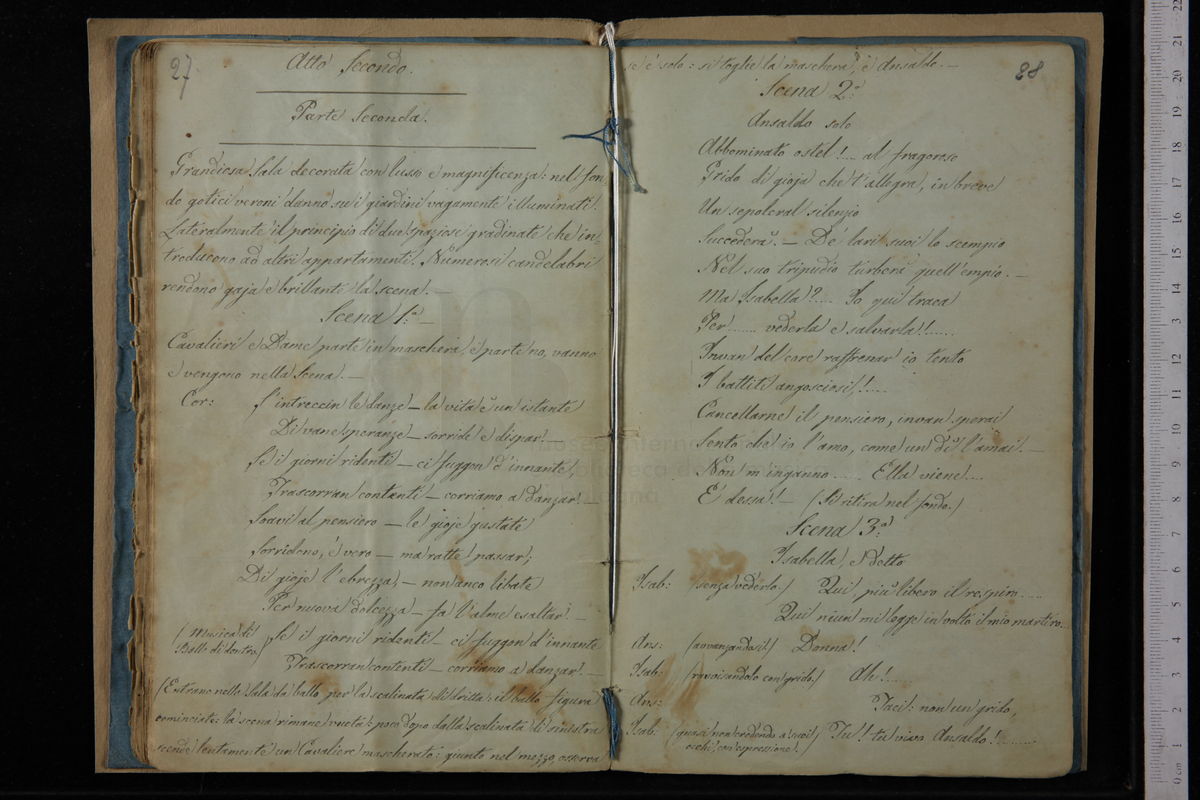 27
Atto Secondo.
Parte Seconda.
Grandiosa Sala decorata con lusso e magnificenza: nel fon-
do gotici veroni danno su i giardini vagamente illuminati.
Lateralmente il principio di due spaziose gradinate che in-
troducono ad altri appartamenti. Numerosi candelabri
rendono gaja e brillante la scena. —
Scena 1ª —
Cavalieri e Dame parte in maschera, e parte no, vanno
e vengono nella Scena. —
Cor: S'intreccin le danze — la vita è un istante
Di vane speranze — sorride e dispar! —
Se i giorni ridenti — ci fuggon d'innante,
Trascorran contenti — corriamo a danzar! —
Soavi al pensiero — le gioje gustate
Sorridono, è vero — ma ratte passar;
Di gioje l'ebrezza, — non anco libate
Per nuova dolcezza — fa l'alme esaltar! —
(Musica di Ballo di dentro.) Se i giorni ridenti — ci fuggon d'innante
Trascorran contenti — corriamo a danzar! —
(Entrano nella Sala da ballo per la scalinata di dritta: il ballo figura
cominciato: la scena rimane vuota: poco dopo dalla scalinata di sinistra
scende lentamente un Cavaliere mascherato: giunto nel mezzo, osserva
28
se è solo: si toglie la maschera, è Ansaldo. —
Scena 2ª
Ansaldo solo
Abbominato ostel!.... al fragoroso
Grido di gioja che t'allegra, in breve
Un sepolcral silenzio
Succederà. — De' lari suoi lo scempio
Nel suo tripudio turberà quell'empio. —
Ma Isabella?.... Io qui traea
Per...... vederla e salvarla!!......
Invan del core raffrenar io tento
I battiti angosciosi!....
Cancellarne il pensiero, invan sperai
Sento che io l'amo, come un dì l'amai. —
Non m'inganno...... Ella viene!....
È dessa! — (Si ritira nel fondo.)
Scena 3ª
Isabella, e detto
Isab: (senza vederlo.) Qui, più libero il respiro.....
Qui niun mi legge in volto il mio martiro...
Ans: (avvanzandosi) Donna!
Isab: (ravvisandolo con grido.) Ah!....
Ans: Taci: non un grido,
Isab: (quasi non credendo a' suoi Tu! tu vivo Ansaldo!........
occhi, con espressione.)